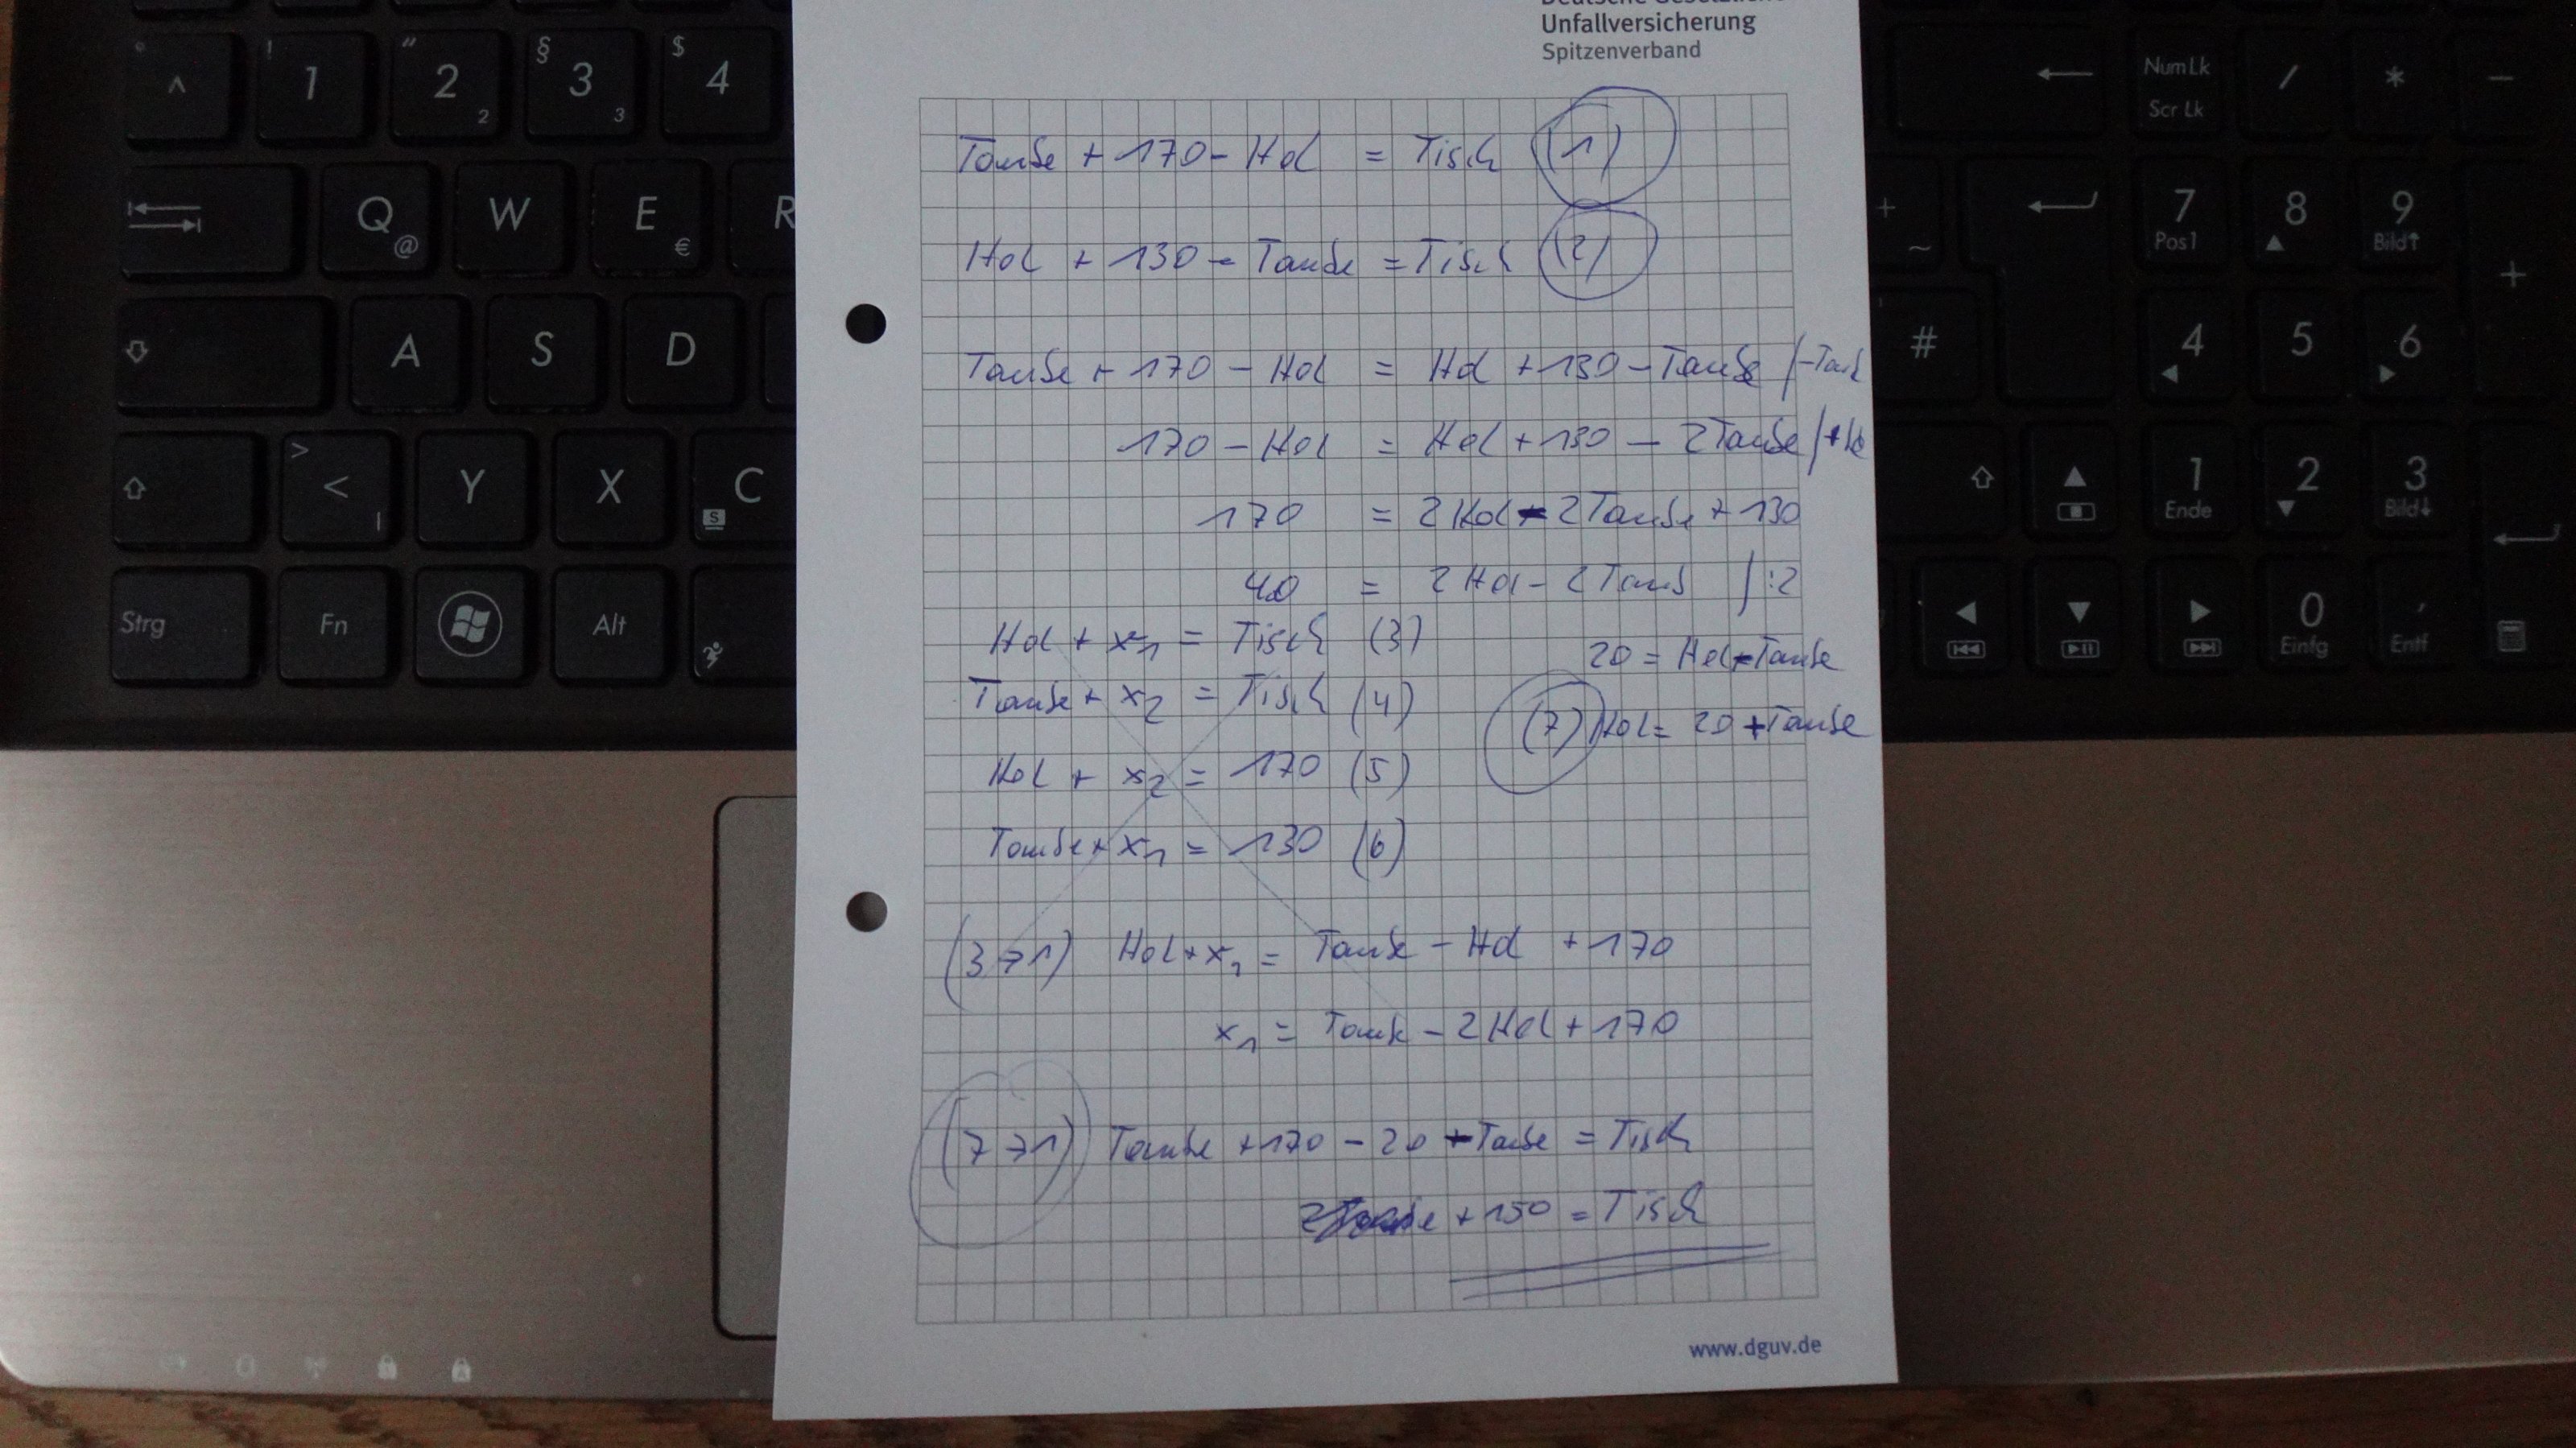 Unfallversicherung
Spitzenverband
Taube + 170 - Hol = Tisch (1)
Hol + 130 - Taube = Tisch (2)
Taube + 170 - Hol = Hol + 130 - Taube /-Taub
170 - Hol = Hol + 130 - 2Taube /+Ho
170 = 2Hol - 2Taube + 130
40 = 2Hol - 2Taub /:2
Hol + x1 = Tisch (3)
20 = Hol - Taube
Taube + x2 = Tisch (4)
(7) Hol = 20 + Taube
Hol + x2 = 170 (5)
Taube + x1 = 130 (6)
(3→1) Hol + x1 = Taube - Hol + 170
x1 = Taube - 2Hol + 170
(7→1) Taube + 170 - 20 - Taube = Tisch
+ 150 = Tisch
www.dguv.de
^ ° 1 ! 2 " 2 3 § 3 4 $
Q @ W E € R
A S D
> < | Y X C S
Strg Fn Alt
← Num Lk Scr Lk / * -
+ ~ 7 Pos1 8 9 Bild↑ +
# ' 4 5 6
1 Ende 2 3 Bild↓
0 Einfg , Entf